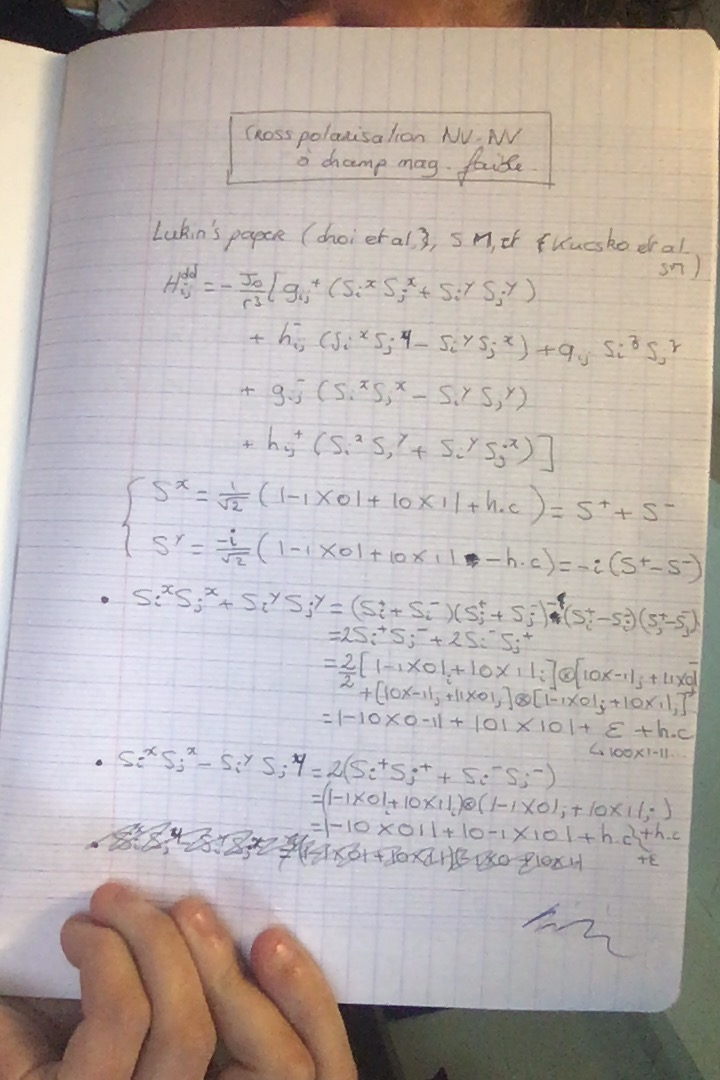 Cross polarisation NV-NV
à champ mag. faible.
Lukin's paper (choi et al.}, SM, et {Kucsko et al
SM)
H_ij^dd = - J_0/r^3 [ g_ij^+ (S_i^x S_j^x + S_i^y S_j^y)
+ h_ij^- (S_i^x S_j^y - S_i^y S_j^x) + q_ij S_i^z S_j^z
+ g_ij^- (S_i^x S_j^x - S_i^y S_j^y)
+ h_ij^+ (S_i^x S_j^y + S_i^y S_j^x) ]
{ S^x = 1/√2 ( |-1X0| + |0X1| + h.c ) = S^+ + S^-
S^y = -i/√2 ( |-1X0| + |0X1| - h.c ) = -i (S^+ - S^-)
• S_i^x S_j^x + S_i^y S_j^y = (S_i^+ + S_i^-)(S_j^+ + S_j^-) - (S_i^+ - S_i^-)(S_j^+ - S_j^-)
= 2S_i^+ S_j^- + 2S_i^- S_j^+
= 2/2 [ |-1X0|_i + |0X1|_i ] ⊗ [ |0X-1|_j + |1X0|
+ [ |0X-1|_i + |1X0|_i ] ⊗ [ |-1X0|_j + |0X1|_j ]
= |-10X0-1| + |01X10| + ε + h.c
↳ |00X1-1| ..
• S_i^x S_j^x - S_i^y S_j^y = 2(S_i^+ S_j^+ + S_i^- S_j^-)
= (|-1X0|_i + |0X1|_i) ⊗ (|-1X0|_j + |0X1|_j)
= |-10X01| + |0-1X10| + h.c } + h.c
+ε